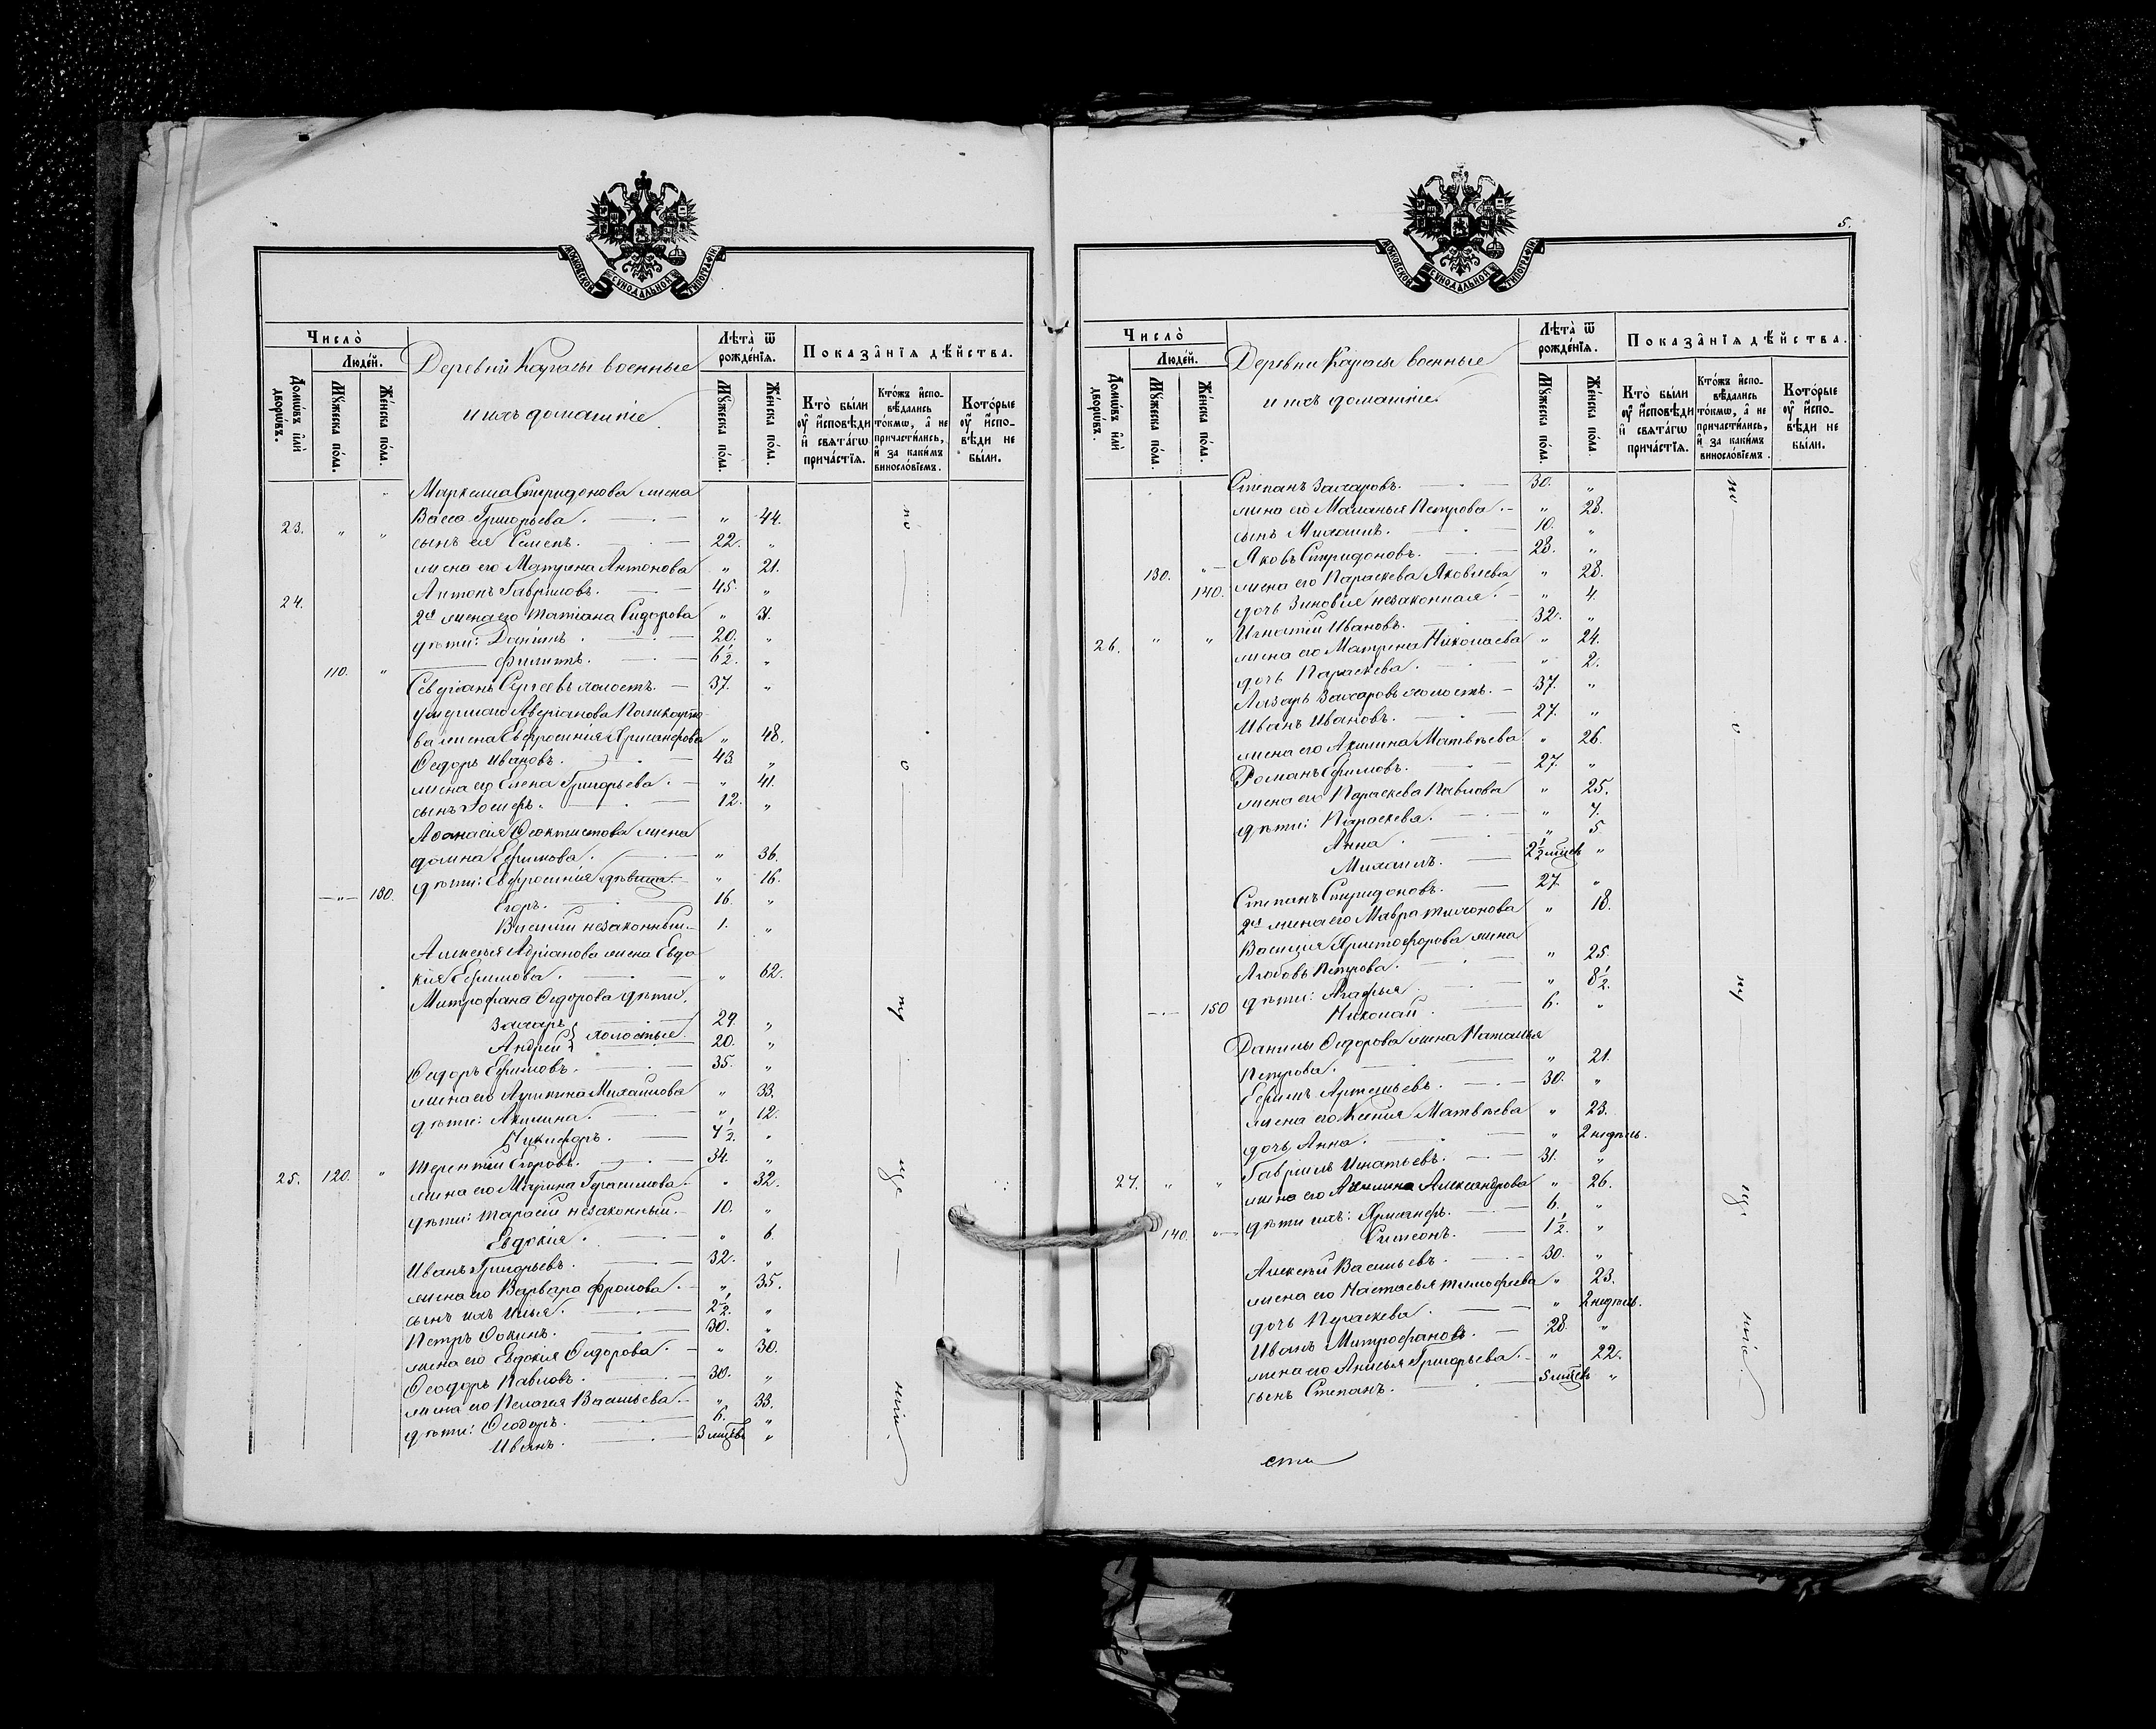 МОСКОВСКОЙ СѴНОДАЛЬНОЙ ТИПОГРАФІИ
Число̀
Людей.
Домѡвъ и҆лѝ дворѡвъ.
Мꙋжеска по́ла.
Же́нска по́ла.
Деревни Карасы военные
и ихъ домашніе.
Лѣта̀ ѿ рожде́нїѧ.
Мꙋжеска по́ла.
Же́нска по́ла.
Показа̑нїѧ дѣ́йства.
Кто̀ бы́ли ᲂу҆ и҆сповѣди и҆ свѧта́гѡ прича́стїѧ.
Кто́жъ и҆спо-вѣдались то́кмѡ, а҆ не причасти́лись, и҆ за каки́мъ винослѡ́вїемъ.
Кото́рые ᲂу҆ и҆спо-вѣди не бы́ли.
Спиридонова жена
23. " " Васса Григорьева. " 44.
сынъ ея Семенъ. 22. "
жена его Матрена Антонова " 21.
24. Антонъ Гавриловъ. 45. "
2я жена его Татіана Сидорова " 31.
дѣти: Даніилъ. 20. "
110. " Филиппъ. 6½. "
Севиріанъ Сергеевъ холостъ. 37. "
умершаго Аверіанова
жена Евфросинія " 48.
Ѳедоръ Ивановъ. 43. "
жена его Елена Григорьева. " 41.
сынъ Іосифъ. 12. "
Аѳанасія Ѳеоктистова жена
Домна Ефимова. " 36.
дѣти: Евфросинія дѣвица. " 16.
" 130. Егоръ. 16. "
Василій незаконный. 1. "
Алексѣя Адріанова жена Евдо
кія Ефимова. " 62.
Митрофана Ѳедорова дѣти:
Захаръ } холостые. 29. "
Андрей } 20. "
Сидоръ Ефимовъ. 35. "
жена его Михайлова " 33.
дѣти: Акилина. " 12.
Никифоръ. 7½. "
Терентій Егоровъ. 34. "
25. 120. " жена его Марина Герасимова. " 32.
дѣти: Тарасій незаконный. 10. "
Евдокія. " 6.
Иванъ Григорьевъ. 32. "
жена его Варвара Фролова. " 35.
сынъ ихъ Илья. 2½. "
Петръ Ѳокинъ. 30. "
жена его Евдокія Сидорова. " 30.
Ѳеодоръ Павловъ. 30. "
жена его Пелагея Васильева. " 33.
дѣти: Ѳеодоръ. 6. "
Иванъ. 3 мѣсѣцевъ "
по
о
му
же
ніи.
5.
МОСКОВСКОЙ СѴНОДАЛЬНОЙ ТИПОГРАФІИ
Число̀
Людей.
Домѡвъ и҆лѝ дворѡвъ.
Мꙋжеска по́ла.
Же́нска по́ла.
Деревни Карасы военные
и ихъ домашніе.
Лѣта̀ ѿ рожде́нїѧ.
Мꙋжеска по́ла.
Же́нска по́ла.
Показа̑нїѧ дѣ́йства.
Кто̀ бы́ли ᲂу҆ и҆сповѣди и҆ свѧта́гѡ прича́стїѧ.
Кто́жъ и҆спо-вѣдались то́кмѡ, а҆ не причасти́лись, и҆ за каки́мъ винослѡ́вїемъ.
Кото́рые ᲂу҆ и҆спо-вѣди не бы́ли.
Степанъ Захаровъ. 30. "
жена его Маланья Петрова. " 28.
сынъ Михаилъ. 10. "
Яковъ Спиридоновъ. 28. "
130. " жена его Параскева Яковлева " 28.
140. дочь Зиновія незаконная. " 4.
Игнатій Ивановъ. 32. "
26. " " жена его Матрена Николаева " 24.
дочь Параскева. " 2.
Лазарь Захаровъ холостъ. 37. "
Иванъ Ивановъ. 27. "
жена его Акилина Матвѣева " 26.
Романъ Ефимовъ. 27. "
жена его Параскева Павлова " 25.
дѣти: Параскева. " 7.
Анна. " 5
Михаилъ. 2½ мѣсѣцевъ "
Степанъ Спиридоновъ. 27. "
2я жена его Мавра Тихонова " 18.
Василія Христофорова жена
Любовь Петрова. " 25.
дѣти: Агафья. " 8½.
150 Николай. 6. "
Данилы Ѳедорова жена Наталья
Петрова. " 21.
Ефимъ Артемьевъ. 30. "
жена его Ксенія Матвѣева " 23.
дочь Анна. " 2 недѣль.
Гавріилъ Игнатьевъ. 31. "
27. " " жена его Акилина Александрова " 26.
дѣти ихъ: 6. "
140. " Симеонъ. 1½. "
Алексѣй Васильевъ. 30. "
жена его Настасья Тимофеева " 23.
дочь Параскева. " 2 недѣль.
Иванъ Митрофановъ. 28. "
жена его Анисья Григорьева. " 22.
сынъ Степанъ. 5 мѣсѣцевъ "
по
о
му
же
ніе
сти